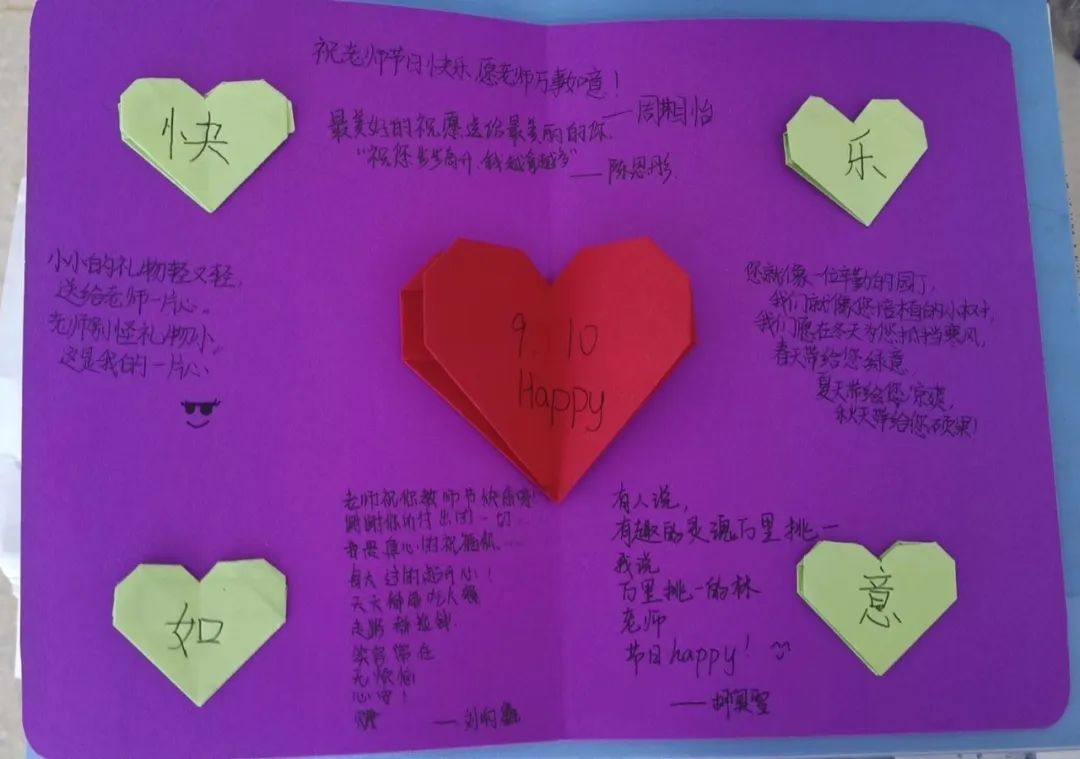 祝老师节日快乐,愿老师万事如意!
——周期怡
最美好的祝愿送给最美丽的你.
"祝您步步高升、钱越拿越多"
——陈恩彤.
快
乐
小小的礼物轻又轻,
送给老师一片心。
老师别怪礼物小,
这是我的一片心.
9.10
Happy
您就像一位辛勤的园丁,
我们就像您培植的小树,
我们愿在冬天为您抵挡寒风,
春天带给您绿意,
夏天带给您凉爽,
秋天带给您硕果!
老师祝你教师节快乐呀!
谢谢你的付出的一切...
我是真心的祝福你......
每天过的超开心!
天天
走路都捡钱
笑容常在
无烦恼
心安!
——刘
有人说,
有趣的灵魂万里挑一
我说
万里挑一的林
老师
节日happy!
如
意